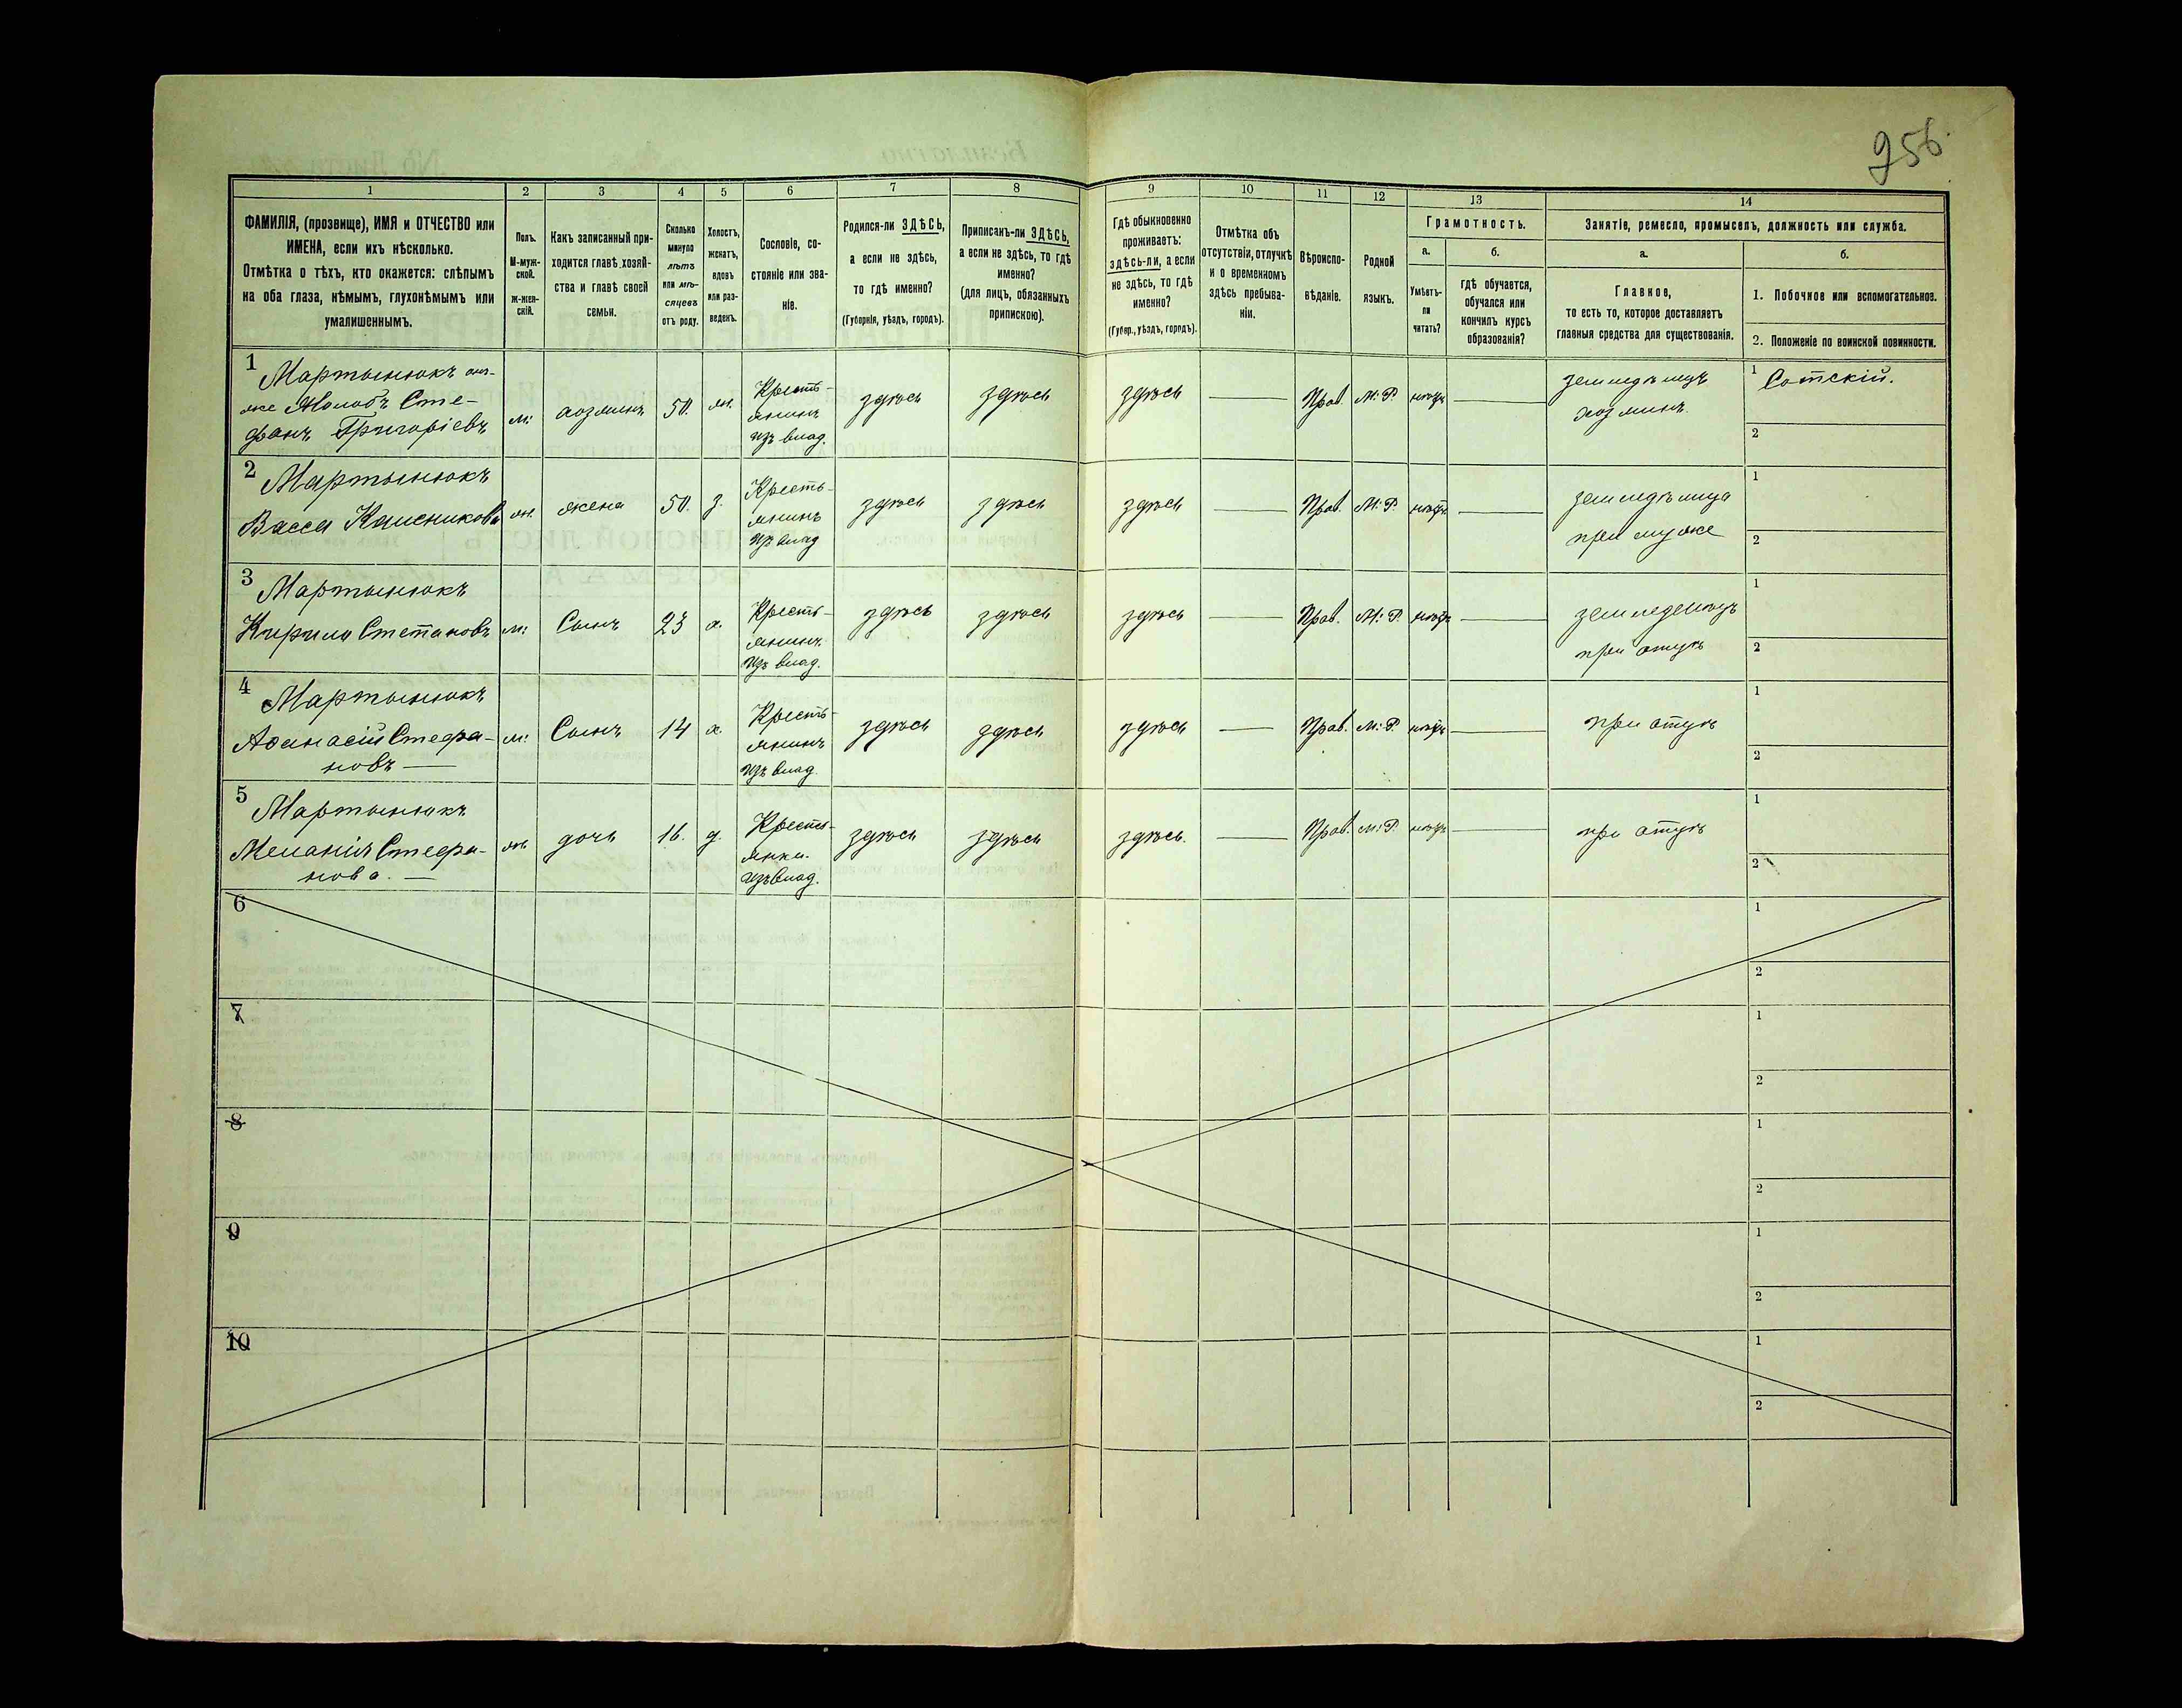 956.
1
2
3
4
5
6
7
8
9
10
11
12
13
14
ФАМИЛІЯ, (прозвище), ИМЯ и ОТЧЕСТВО или
ИМЕНА, если ихъ нѣсколько.
Отмѣтка о тѣхъ, кто окажется: слѣпымъ
на оба глаза, нѣмымъ, глухонѣмымъ или
умалишеннымъ.
Полъ.
М-муж-
ской.
ж-жен-
скій.
Какъ записанный при-
ходится главѣ хозяй-
ства и главѣ своей
семьи.
Сколько
минуло
лѣтъ
или мѣ-
сяцевъ
отъ роду.
Холостъ,
женатъ,
вдовъ
или раз-
веденъ.
Сословіе, со-
стояніе или зва-
ніе.
Родился-ли ЗДѢСЬ,
а если не здѣсь,
то гдѣ именно?
(Губернія, уѣздъ, городъ).
Приписанъ-ли ЗДѢСЬ,
а если не здѣсь, то гдѣ
именно?
(для лицъ, обязанныхъ
припискою).
Гдѣ обыкновенно
проживаетъ:
здѣсь-ли, а если
не здѣсь, то гдѣ
именно?
(Губер., уѣздъ, городъ).
Отмѣтка объ
отсутствіи, отлучкѣ
и о временномъ
здѣсь пребыва-
ніи.
Вѣроиспо-
вѣданіе.
Родной
языкъ.
Грамотность.
а.
Умѣетъ-
ли
читать?
б.
гдѣ обучается,
обучался или
кончилъ курсъ
образованія?
Занятіе, ремесло, промыселъ, должность или служба.
а.
Главное,
то есть то, которое доставляетъ
главныя средства для существованія.
б.
1. Побочное или вспомогательное.
2. Положеніе по воинской повинности.
1
Мартынюкъ
же Сте-
фанъ Григоріевъ
м:
хозяинъ
50.
ж.
Кресть-
янинъ
изъ влад.
здѣсь
здѣсь
здѣсь
Прав.
М: Р.
нѣтъ
земледѣлецъ
хозяинъ.
1
Сотскій.
2
2
Мартынюкъ
Васса
ж.
жена
50.
з.
Кресть-
янинъ
изъ влад
здѣсь
здѣсь
здѣсь
Прав.
М: Р.
нѣтъ
земледѣлица
при мужѣ
1
2
3
Мартынюкъ
Кирило Степановъ
м:
Сынъ
23
х.
Кресть-
янинъ.
изъ влад.
здѣсь
здѣсь
здѣсь
Прав.
М: Р.
нѣтъ
земледелецъ
при отцѣ
1
2
4
Мартынюкъ
Аѳанасій Стефа-
новъ
м:
Сынъ
14
х.
Кресть-
янинъ
изъ влад.
здѣсь
здѣсь
здѣсь
Прав.
М: Р.
нѣтъ
при отцѣ
1
2
5
Мартынюкъ
Меланія Стефа-
нова.
ж.
дочь
16.
д.
Кресть-
янка.
изъ влад.
здѣсь
здѣсь
здѣсь.
Прав.
М: Р.
нѣтъ
при отцѣ
1
2
6
1
2
7
1
2
8
1
2
9
1
2
10
1
2